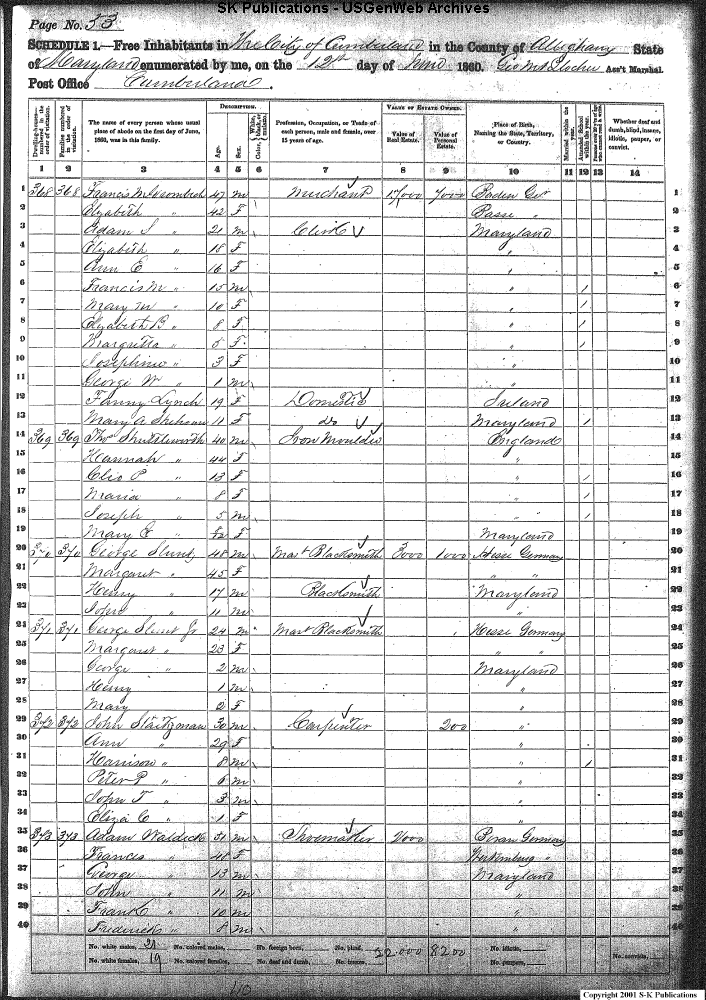 SK Publications - USGenWeb Archives
Page No. 53
SCHEDULE 1.—Free Inhabitants in The City of Cumberland in the County of Alleghany State
of Maryland enumerated by me, on the 12th day of June 1860. Ass't Marshal.
Post Office Cumberland.
DESCRIPTION. VALUE OF ESTATE OWNED.
Dwelling-houses—numbered in the order of visitation. Families numbered in the order of visitation. The name of every person whose usual place of abode on the first day of June, 1860, was in this family. Age. Sex. Color, White, black, or mulatto. Profession, Occupation, or Trade of each person, male and female, over 15 years of age. Value of Real Estate. Value of Personal Estate. Place of Birth, Naming the State, Territory, or Country. Married within the year. Attended School within the year. Whether deaf and dumb, blind, insane, idiotic, pauper, or convict.
1 2 3 4 5 6 7 8 9 10 11 12 13 14
1 368 368 Francis 47 m Merchant 7000 Baden Ger 1
2 Elizabeth " 42 F " 2
3 Adam S " 21 m Clerk Maryland 3
4 Elizabeth " 18 F " 4
5 Ann E " 16 F " 5
6 Francis M " 15 m " / 6
7 Mary M " 10 F " / 7
8 Elizabeth B " 8 F " / 8
9 Margretta " 5 F " / 9
10 Josephine " 3 F " 10
11 George W " 1 m " 11
12 Fanny Lynch 19 F Domestic Ireland 12
13 Mary A 11 F do Maryland / 13
14 369 369 Thos Shuttleworth 40 m Iron Moulder England 14
15 Hannah " 44 F " 15
16 P " 13 F " / 16
17 Maria " 8 F " / 17
18 Joseph " 5 m " / 18
19 Mary E " F Maryland 19
20 370 370 George Sluntz 48 m Mast Blacksmith 3000 1000 Hesse Germany 20
21 Margaret " 45 F " " 21
22 Henry " 17 m Blacksmith Maryland 22
23 John " 11 m " 23
24 371 371 George Jr 24 m Mast Blacksmith Hesse Germany 24
25 Margaret " 23 F " " 25
26 George " 2 m Maryland 26
27 Henry " 1 m " 27
28 Mary 2 F " 28
29 372 372 John 30 m Carpenter 200 " 29
30 Ann " 29 F " 30
31 Harrison " 8 m " / 31
32 Peter P " 6 m " 32
33 John T " 3 m " 33
34 Eliza C " 1 F " 34
35 373 373 Adam Waldeck 51 m Shoemaker 2000 Germany 35
36 Frances " 48 F " 36
37 George " 13 m Maryland 37
38 John " 11 m " 38
39 Frank " 10 m " 39
40 Frederick " 8 m " 40
No. white males, 21 No. colored males, No. foreign born, No. blind, 22.000 8200 No. idiotic,
No. white females, 19 No. colored females, No. deaf and dumb, No. insane, No. paupers, No. convicts,
110
Copyright 2001 S-K Publications